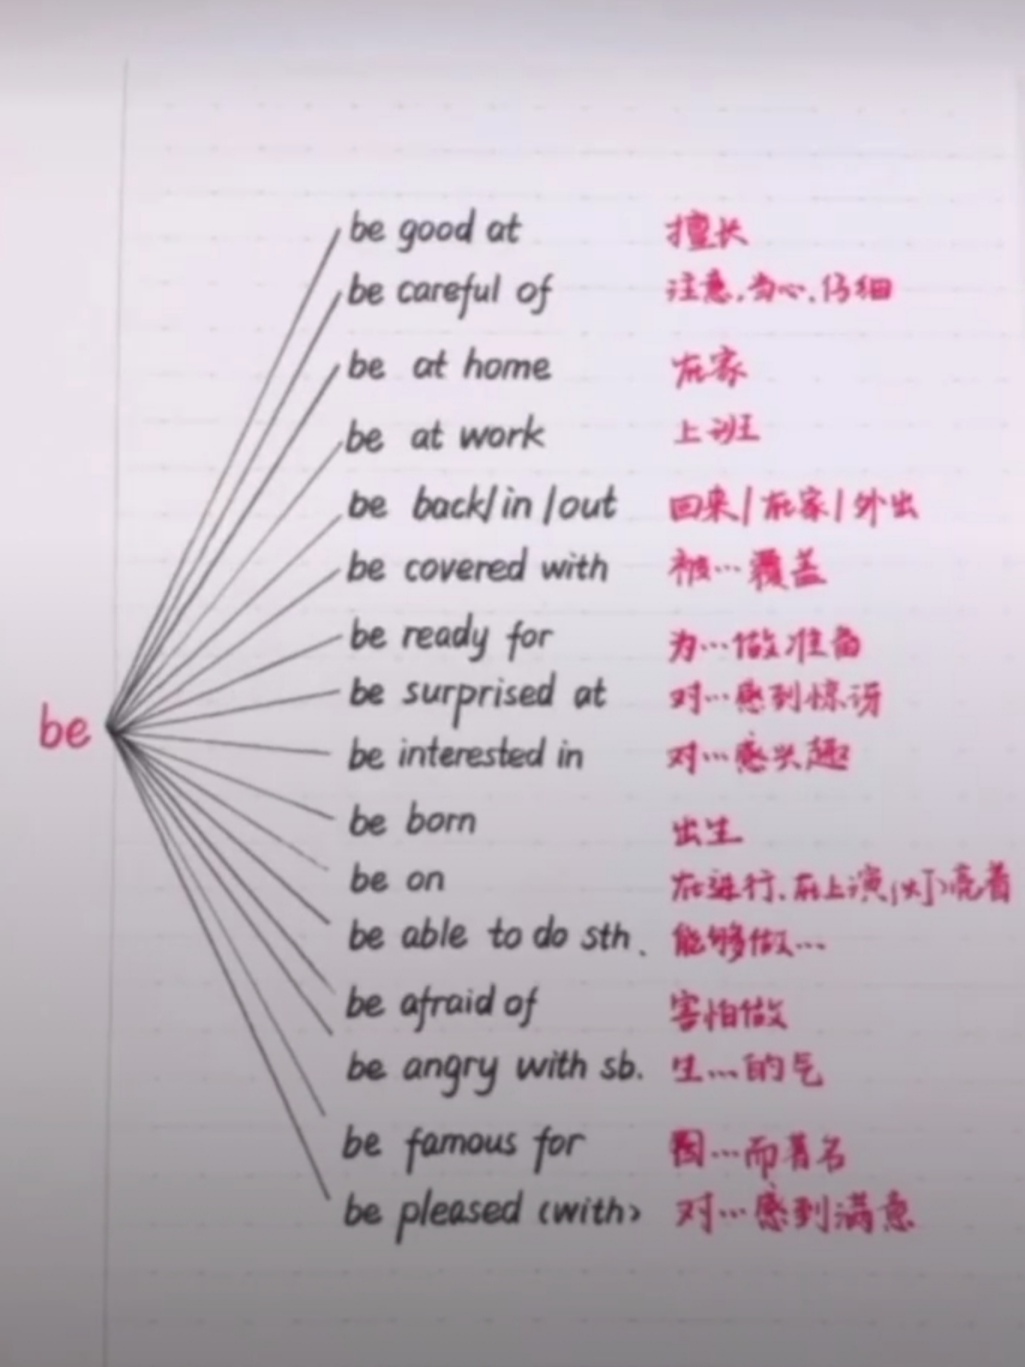 be good at 擅长
be careful of 注意.当心.仔细
be at home 在家
be at work 上班
be back/in/out 回来/在家/外出
be covered with 被…覆盖
be ready for 为…做准备
be surprised at 对…感到惊讶
be interested in 对…感兴趣
be
be born 出生
be on 在进行.在上演(灯)亮着
be able to do sth. 能够做…
be afraid of 害怕做
be angry with sb. 生…的气
be famous for 因…而著名
be pleased (with) 对…感到满意